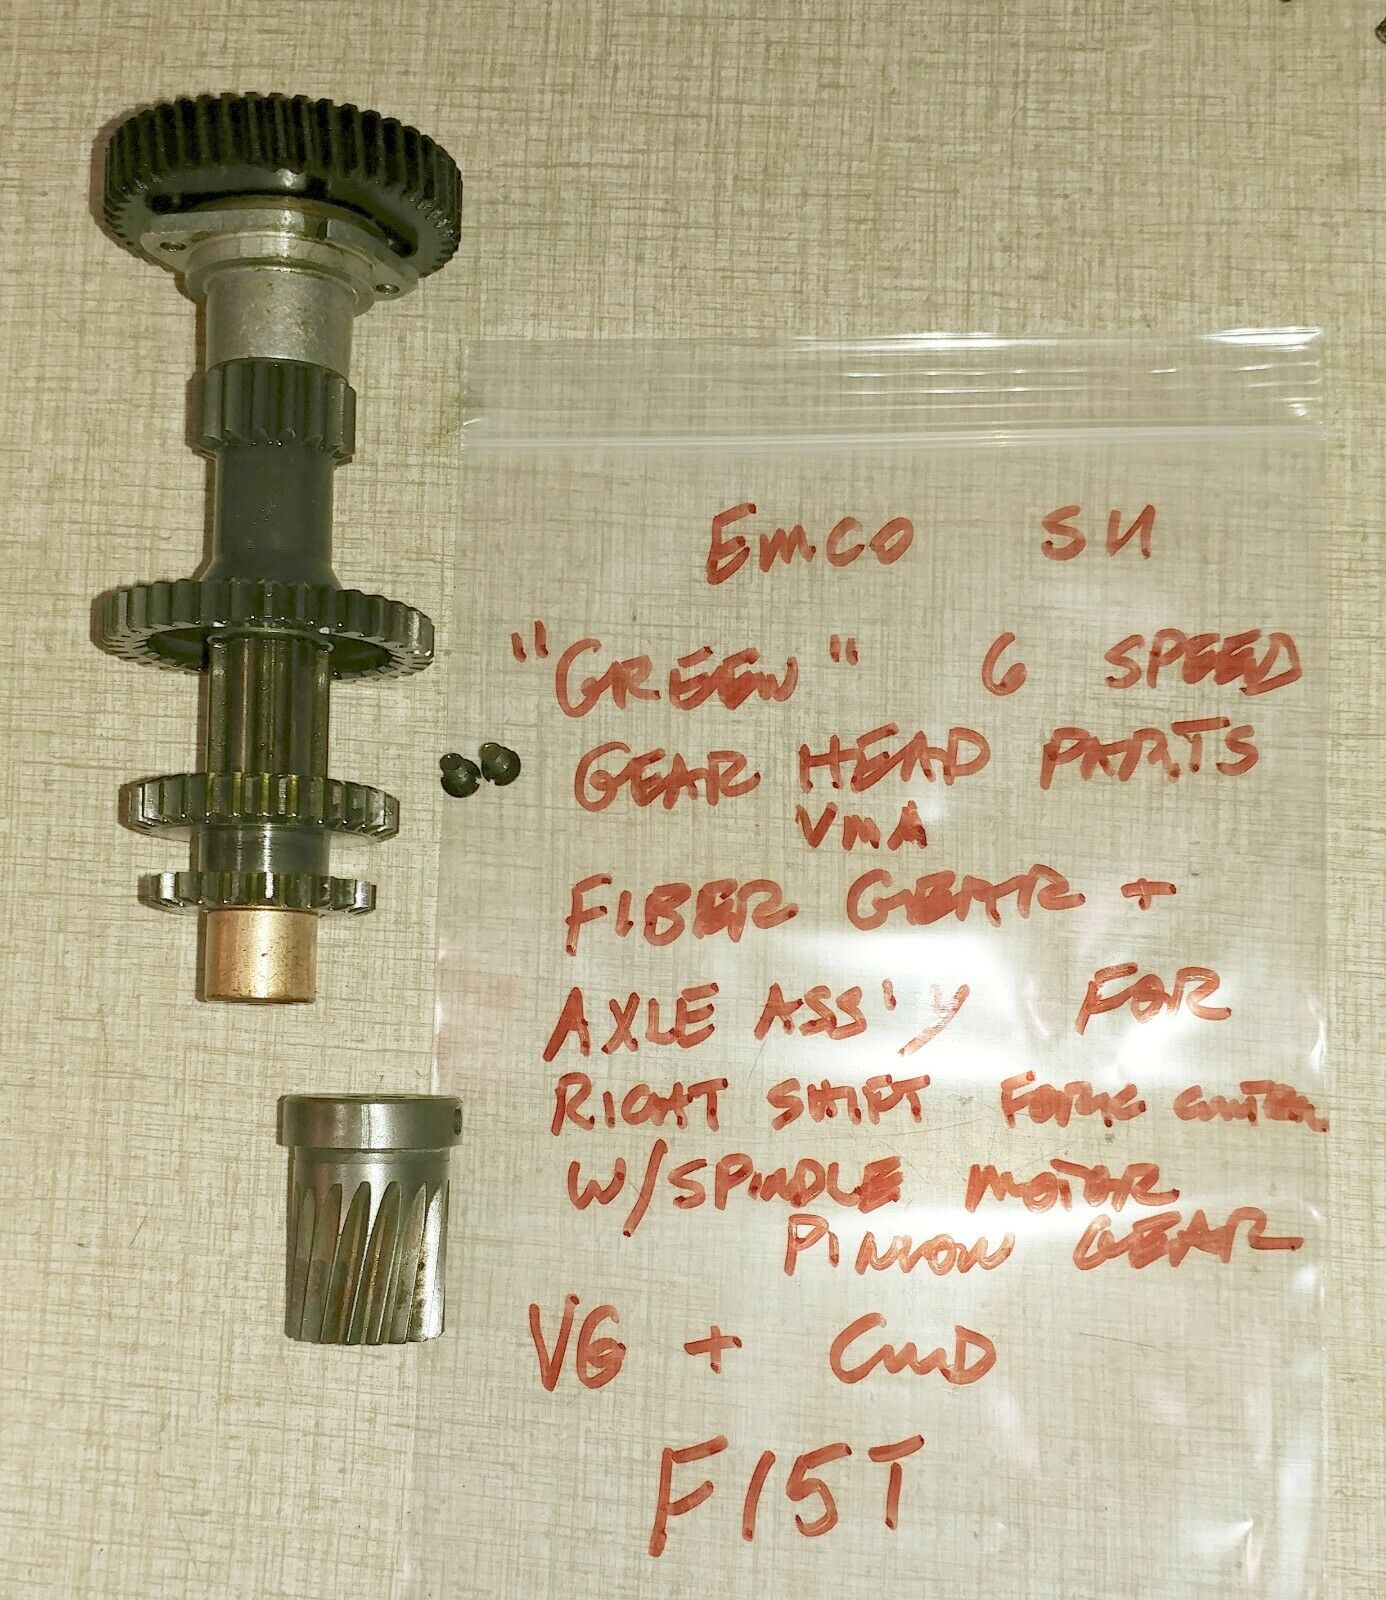 Emco SU
"GREEN" 6 SPEED
GEAR HEAD PARTS
VMA
FIBER GEAR +
AXLE ASS'Y FOR
RIGHT SHIFT
W/SPINDLE MOTOR
PINION GEAR
VG + CMD
F15T